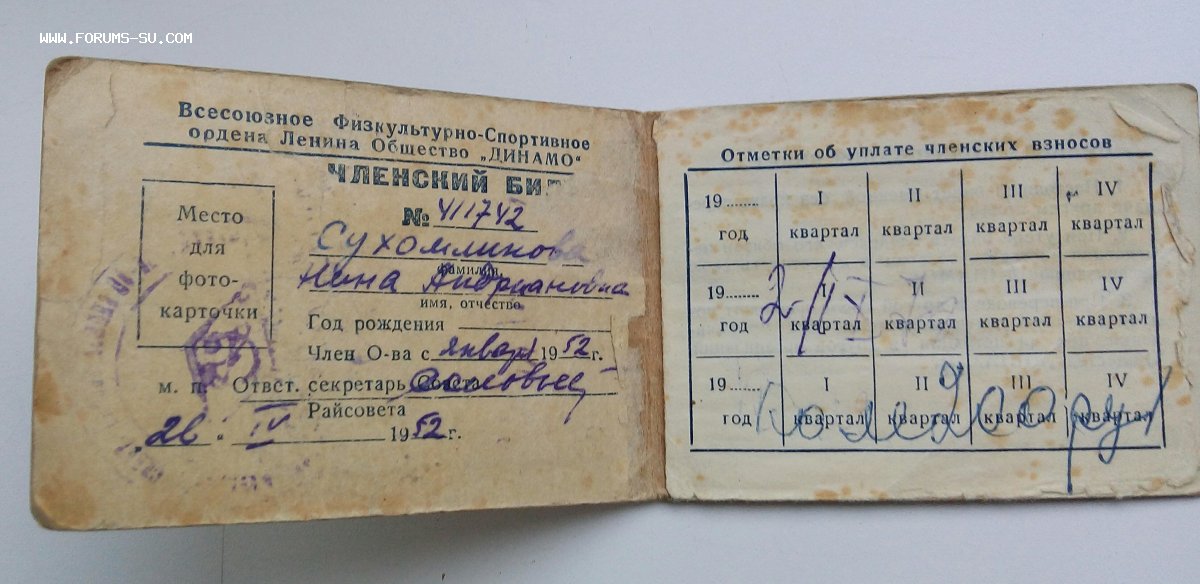 WWW.FORUMS-SU.COM
Всесоюзное Физкультурно-Спортивное
ордена Ленина Общество „ДИНАМО“
ЧЛЕНСКИЙ БИЛ
№ 411742
Место
для
фото-
карточки
Сухомлинова
фамилия,
Нина Андриановна
имя, отчество
Год рождения
Член О-ва с январ 1952 г.
м. п. Ответ. секретарь
Райсовета
IV 1952 г.
Отметки об уплате членских взносов
19....... I II III IV
год квартал квартал квартал квартал
19....... I II III IV
год квартал квартал квартал квартал
19....... I II III IV
год квартал квартал квартал квартал